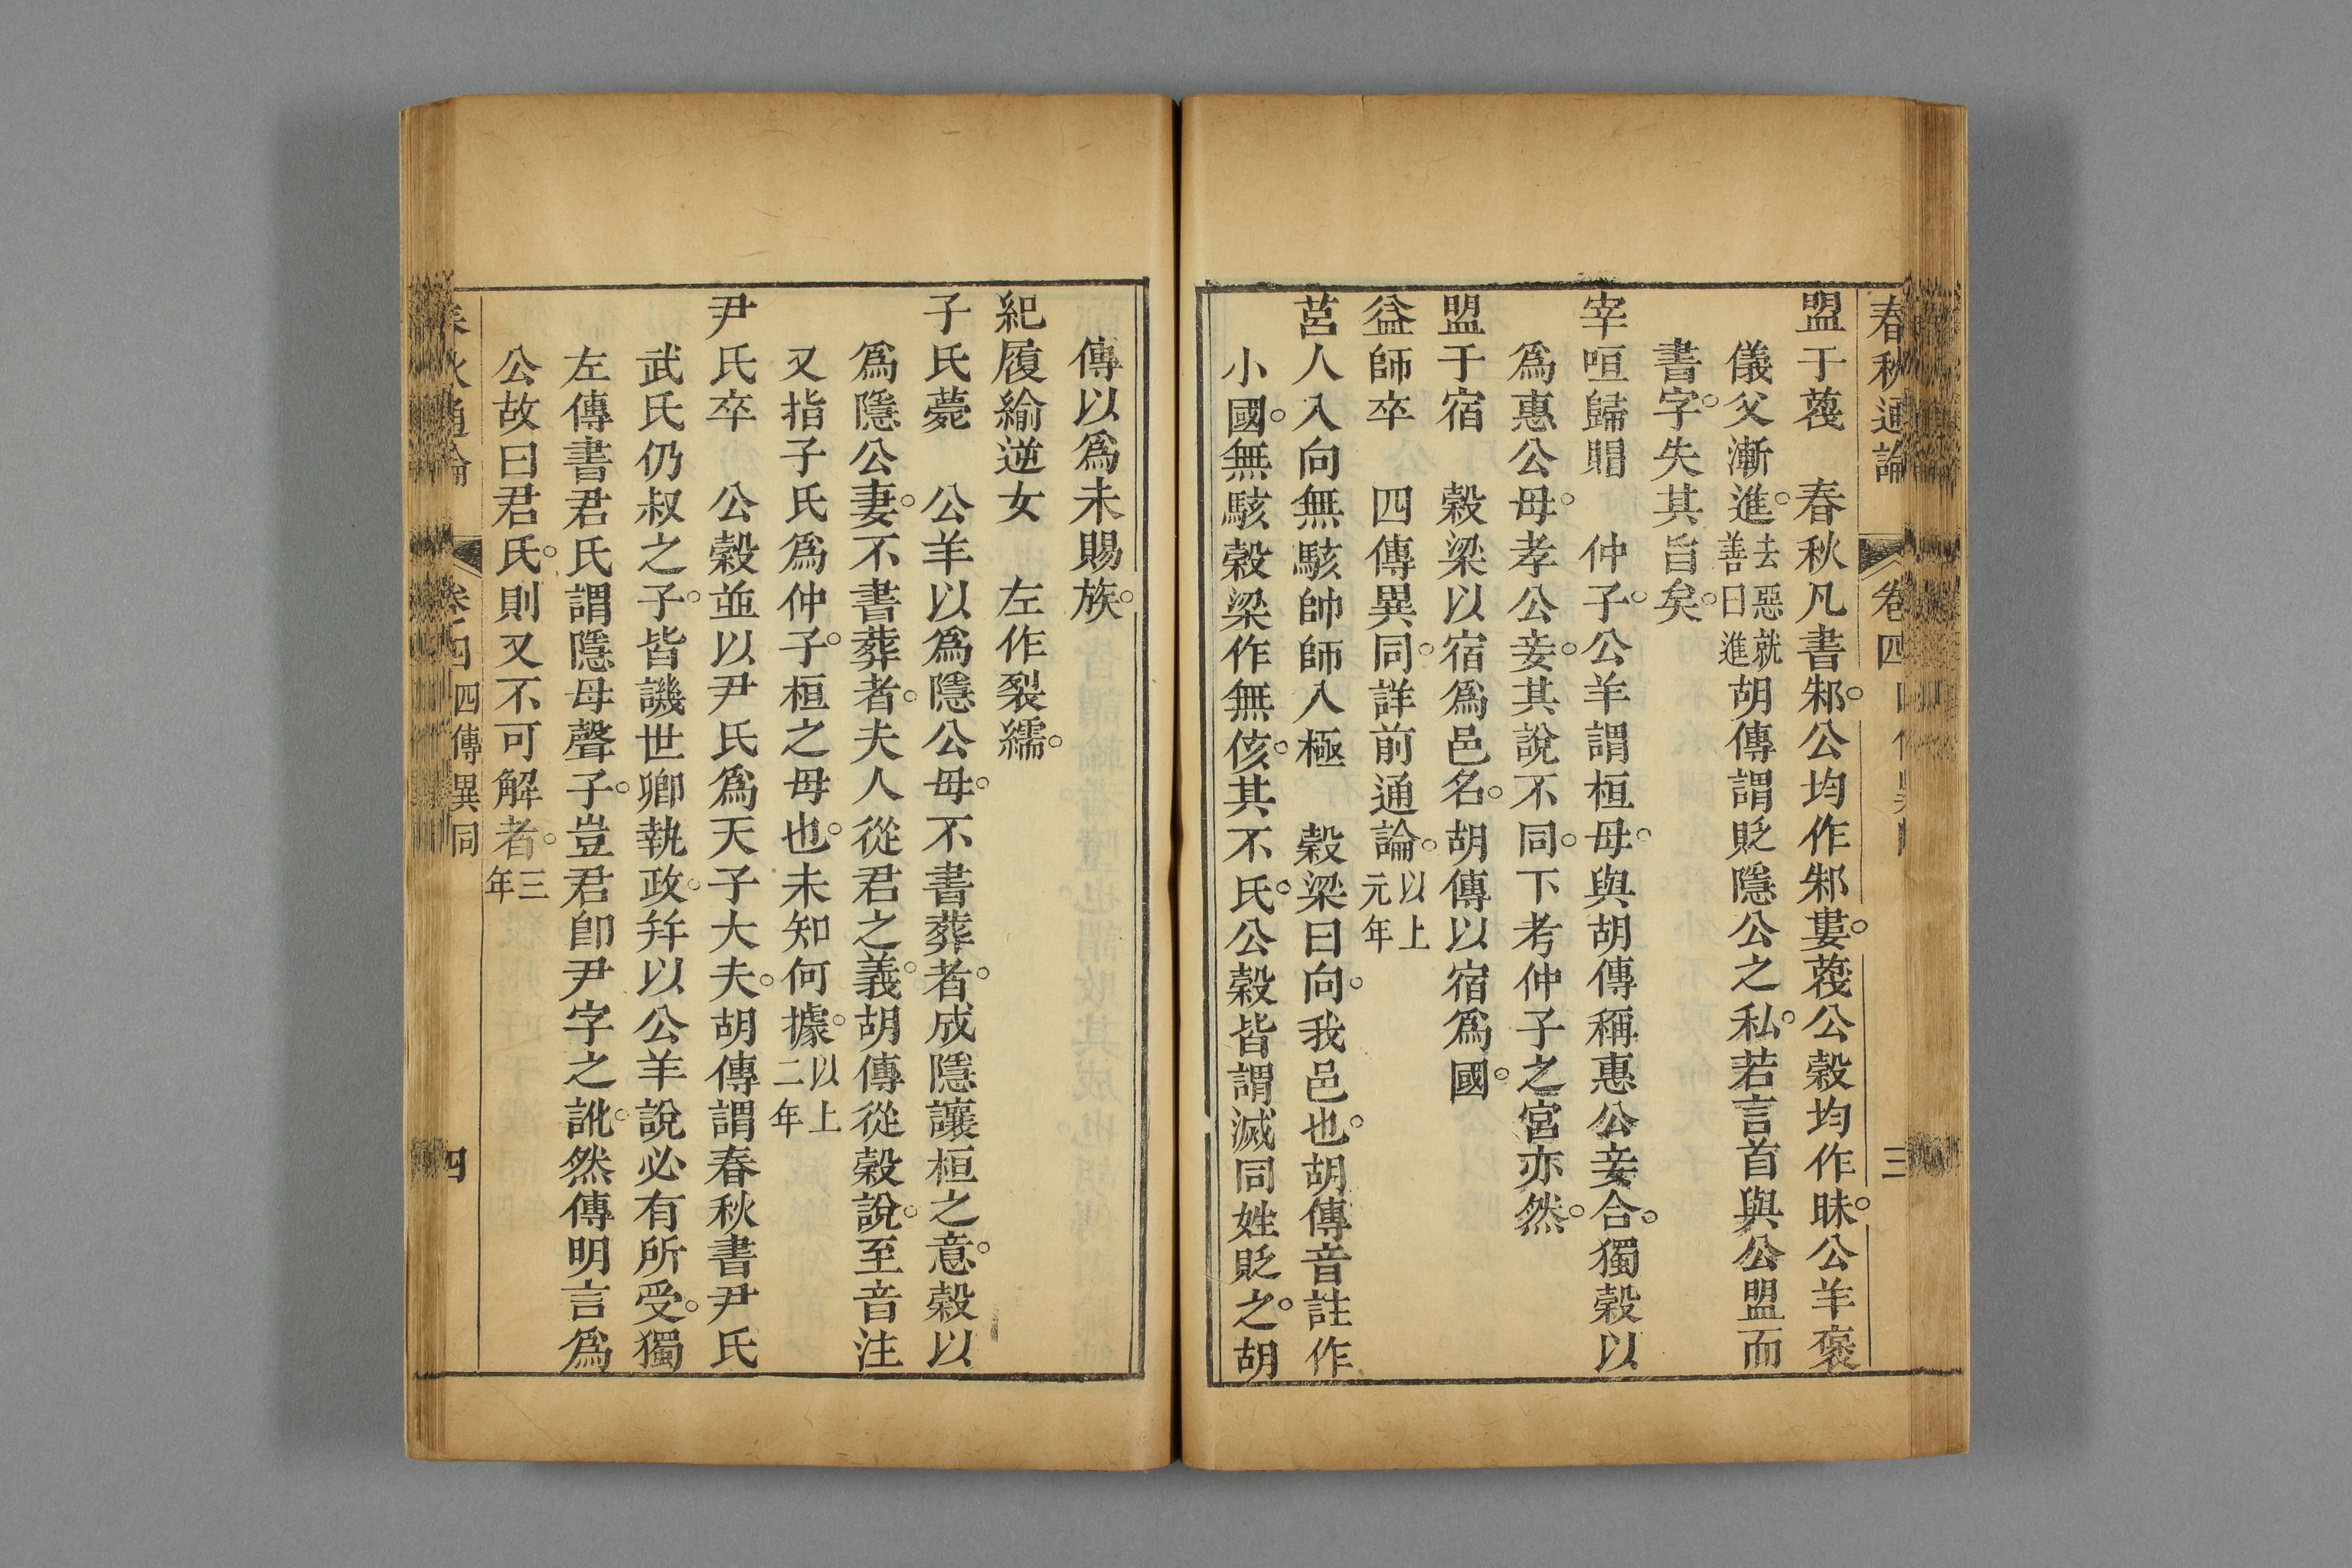 春秋通論 卷四 三
盟于蔑 春秋凡書邾。公均作邾婁。蔑公穀均作昧。公羊褒
儀父漸進。去惡就善曰進胡傳謂貶隱公之私。若言首與公盟而
書字。失其旨矣。
宰咺歸賵 仲子。公羊謂桓母。與胡傳稱惠公妾合。獨穀以
爲惠公母。孝公妾。其說不同。下考仲子之宮亦然。
盟于宿 穀梁以宿爲邑名。胡傳以宿爲國。
益師卒 四傳異同。詳前通論。以上元年
莒人入向無駭帥師入極 穀梁曰向。我邑也。胡傳音註作
小國。無駭穀梁作無侅。其不氏。公穀皆謂滅同姓貶之。胡
傳以爲未賜族。
紀履緰逆女 左作裂繻。
子氏薨 公羊以爲隱公母。不書葬者。成隱讓桓之意。穀以
爲隱公妻。不書葬者。夫人從君之義。胡傳從穀說。至音注
又指子氏爲仲子。桓之母也。未知何據。以上二年
尹氏卒 公穀並以尹氏爲天子大夫。胡傳謂春秋書尹氏
武氏仍叔之子。皆譏世卿執政。并以公羊說必有所受。獨
左傳書君氏謂隱母聲子。豈君卽尹字之訛。然傳明言爲
公故曰君氏。則又不可解者。三年
春秋通論 卷四 四傳異同 四